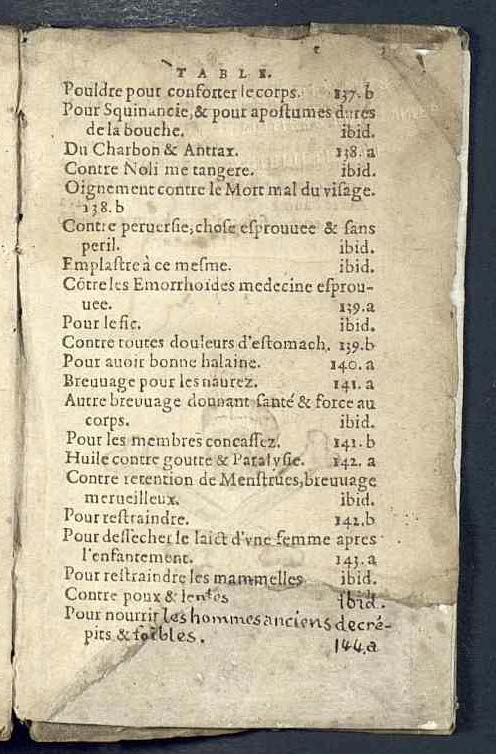 TABLE.
Pouldre pour conforter le corps. 137.b
Pour Squinancie, & pour apostumes dures
de la bouche. ibid.
Du Charbon & Antrax. 138.a
Contre Noli me tangere. ibid.
Oignement contre le Mort mal du visage.
138.b
Contre peruersie, chose esprouuee & sans
peril. ibid.
Emplastre à ce mesme. ibid.
Cõtre les Emorrhoides medecine esprou-
uee. 139.a
Pour le fic. ibid.
Contre toutes douleurs d'estomach. 139.b
Pour auoir bonne halaine. 140.a
Breuuage pour les naurez. 141.a
Autre breuuage donnant santé & force au
corps. ibid.
Pour les membres concassez. 141.b
Huile contre goutte & Paralysie. 142.a
Contre retention de Menstrues, breuuage
merueilleux. ibid.
Pour restraindre. 142.b
Pour dessecher le laict d'vne femme apres
l'enfantement. 143.a
Pour restraindre les mammelles ibid.
Contre poux & lentes ibid.
Pour nourrir les hommes anciens decré-
pits & foibles. 144.a